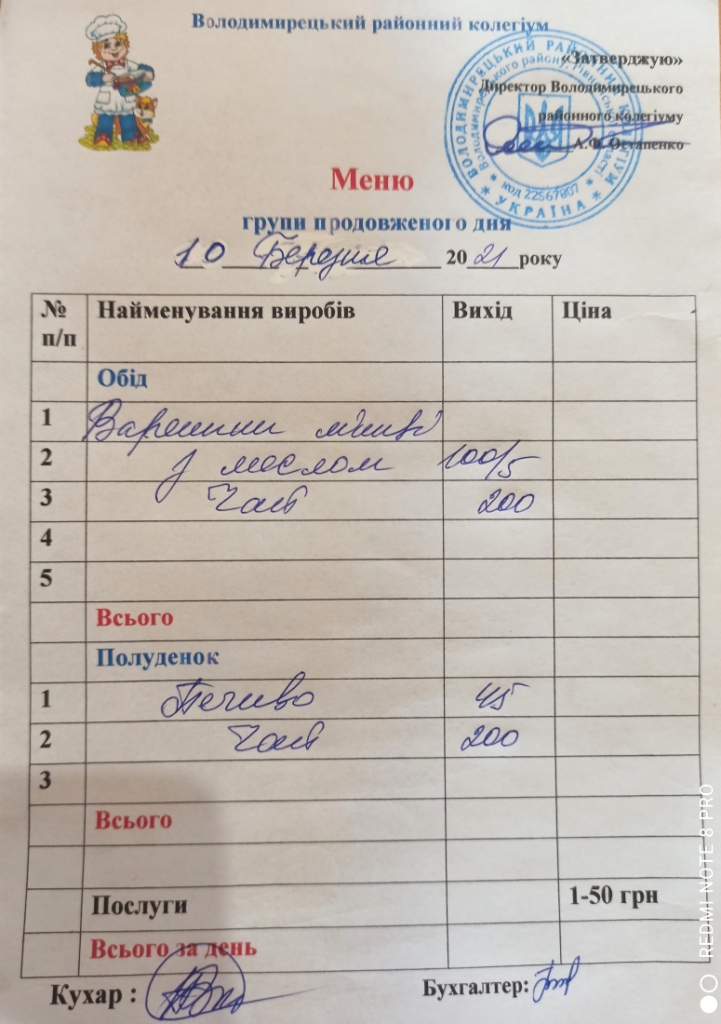 Володимирецький районний колегіум
«Затверджую»
Директор Володимирецького
районного колегіуму
А.Ф. Остапенко
ВОЛОДИМИРЕЦЬКИЙ РАЙОННИЙ КОЛЕГІУМ
Володимирецького району Рівненської області
* код 22567807 *
* УКРАЇНА *
Меню
групи продовженого дня
10 Березня 2021 року
№ п/п Найменування виробів Вихід Ціна
Обід
1 Вареники ліниві
2 з маслом 100/5
3 Чай 200
4
5
Всього
Полуденок
1 Печиво 45
2 Чай 200
3
Всього
Послуги 1-50 грн
Всього за день
Кухар : Бухгалтер:
REDMI NOTE 8 PRO